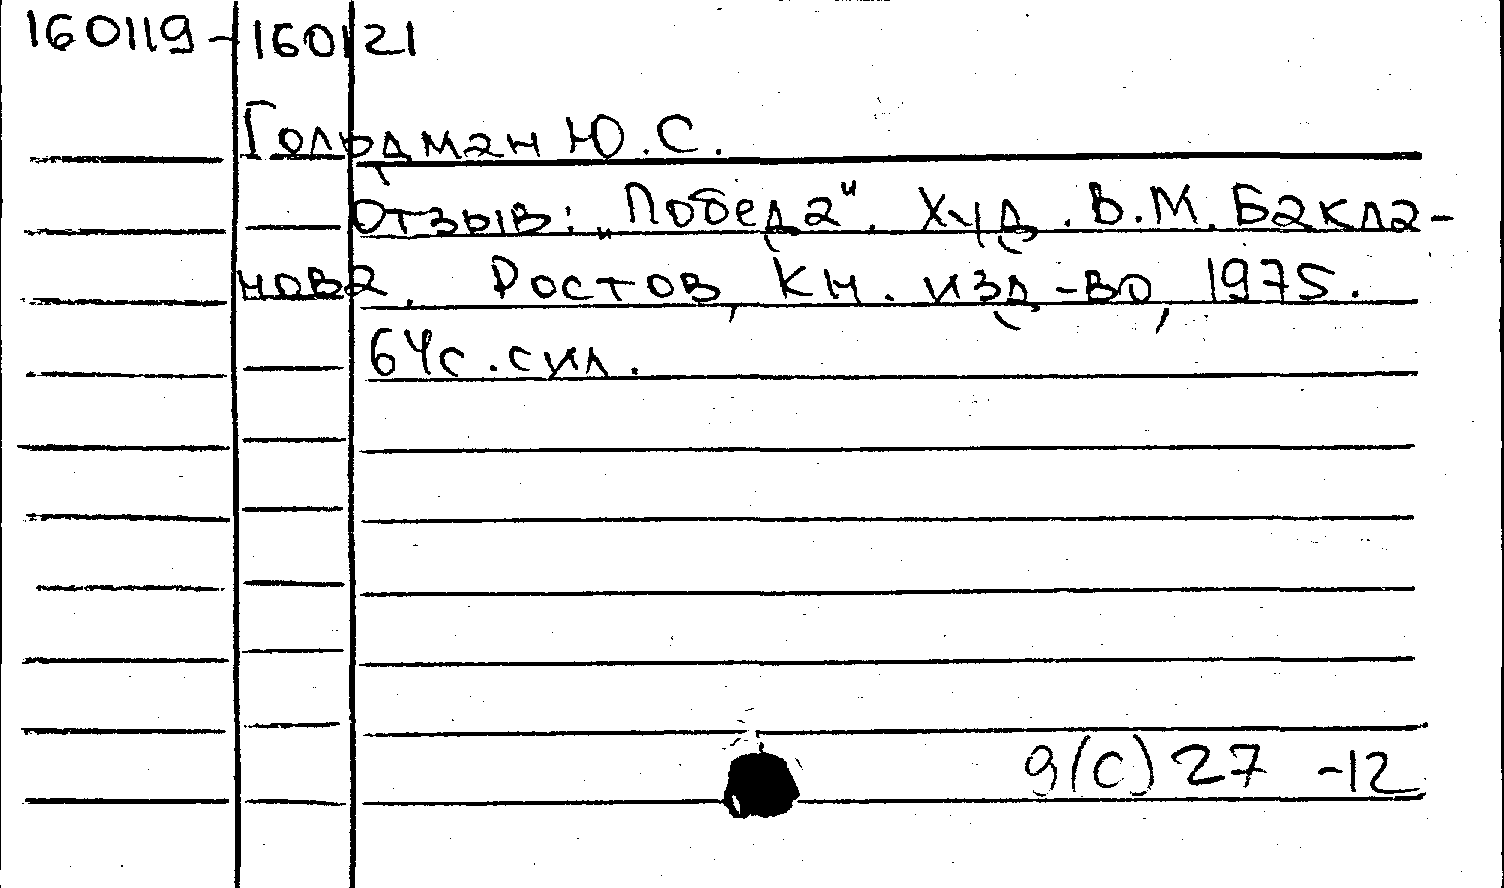 160119-160121
Гольдман Ю.С.
Отзыв: „Победа". Худ. В.М. Бакла-
нова. Ростов, Кн. изд-во, 1975.
64с. с ил.
9(С)27 -12